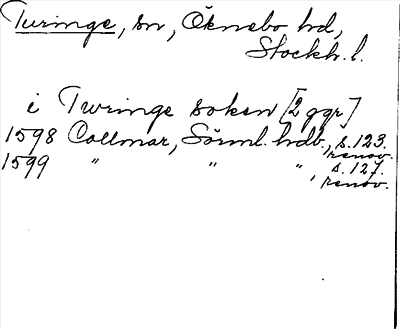 Turinge, sn, Öknebo hd,
Stockh. l.
i Twringe soken [2 ggr]
1598 Collmar, Sörml. hdb., s. 123.
renov.
1599 " " ", s. 127.
renov.